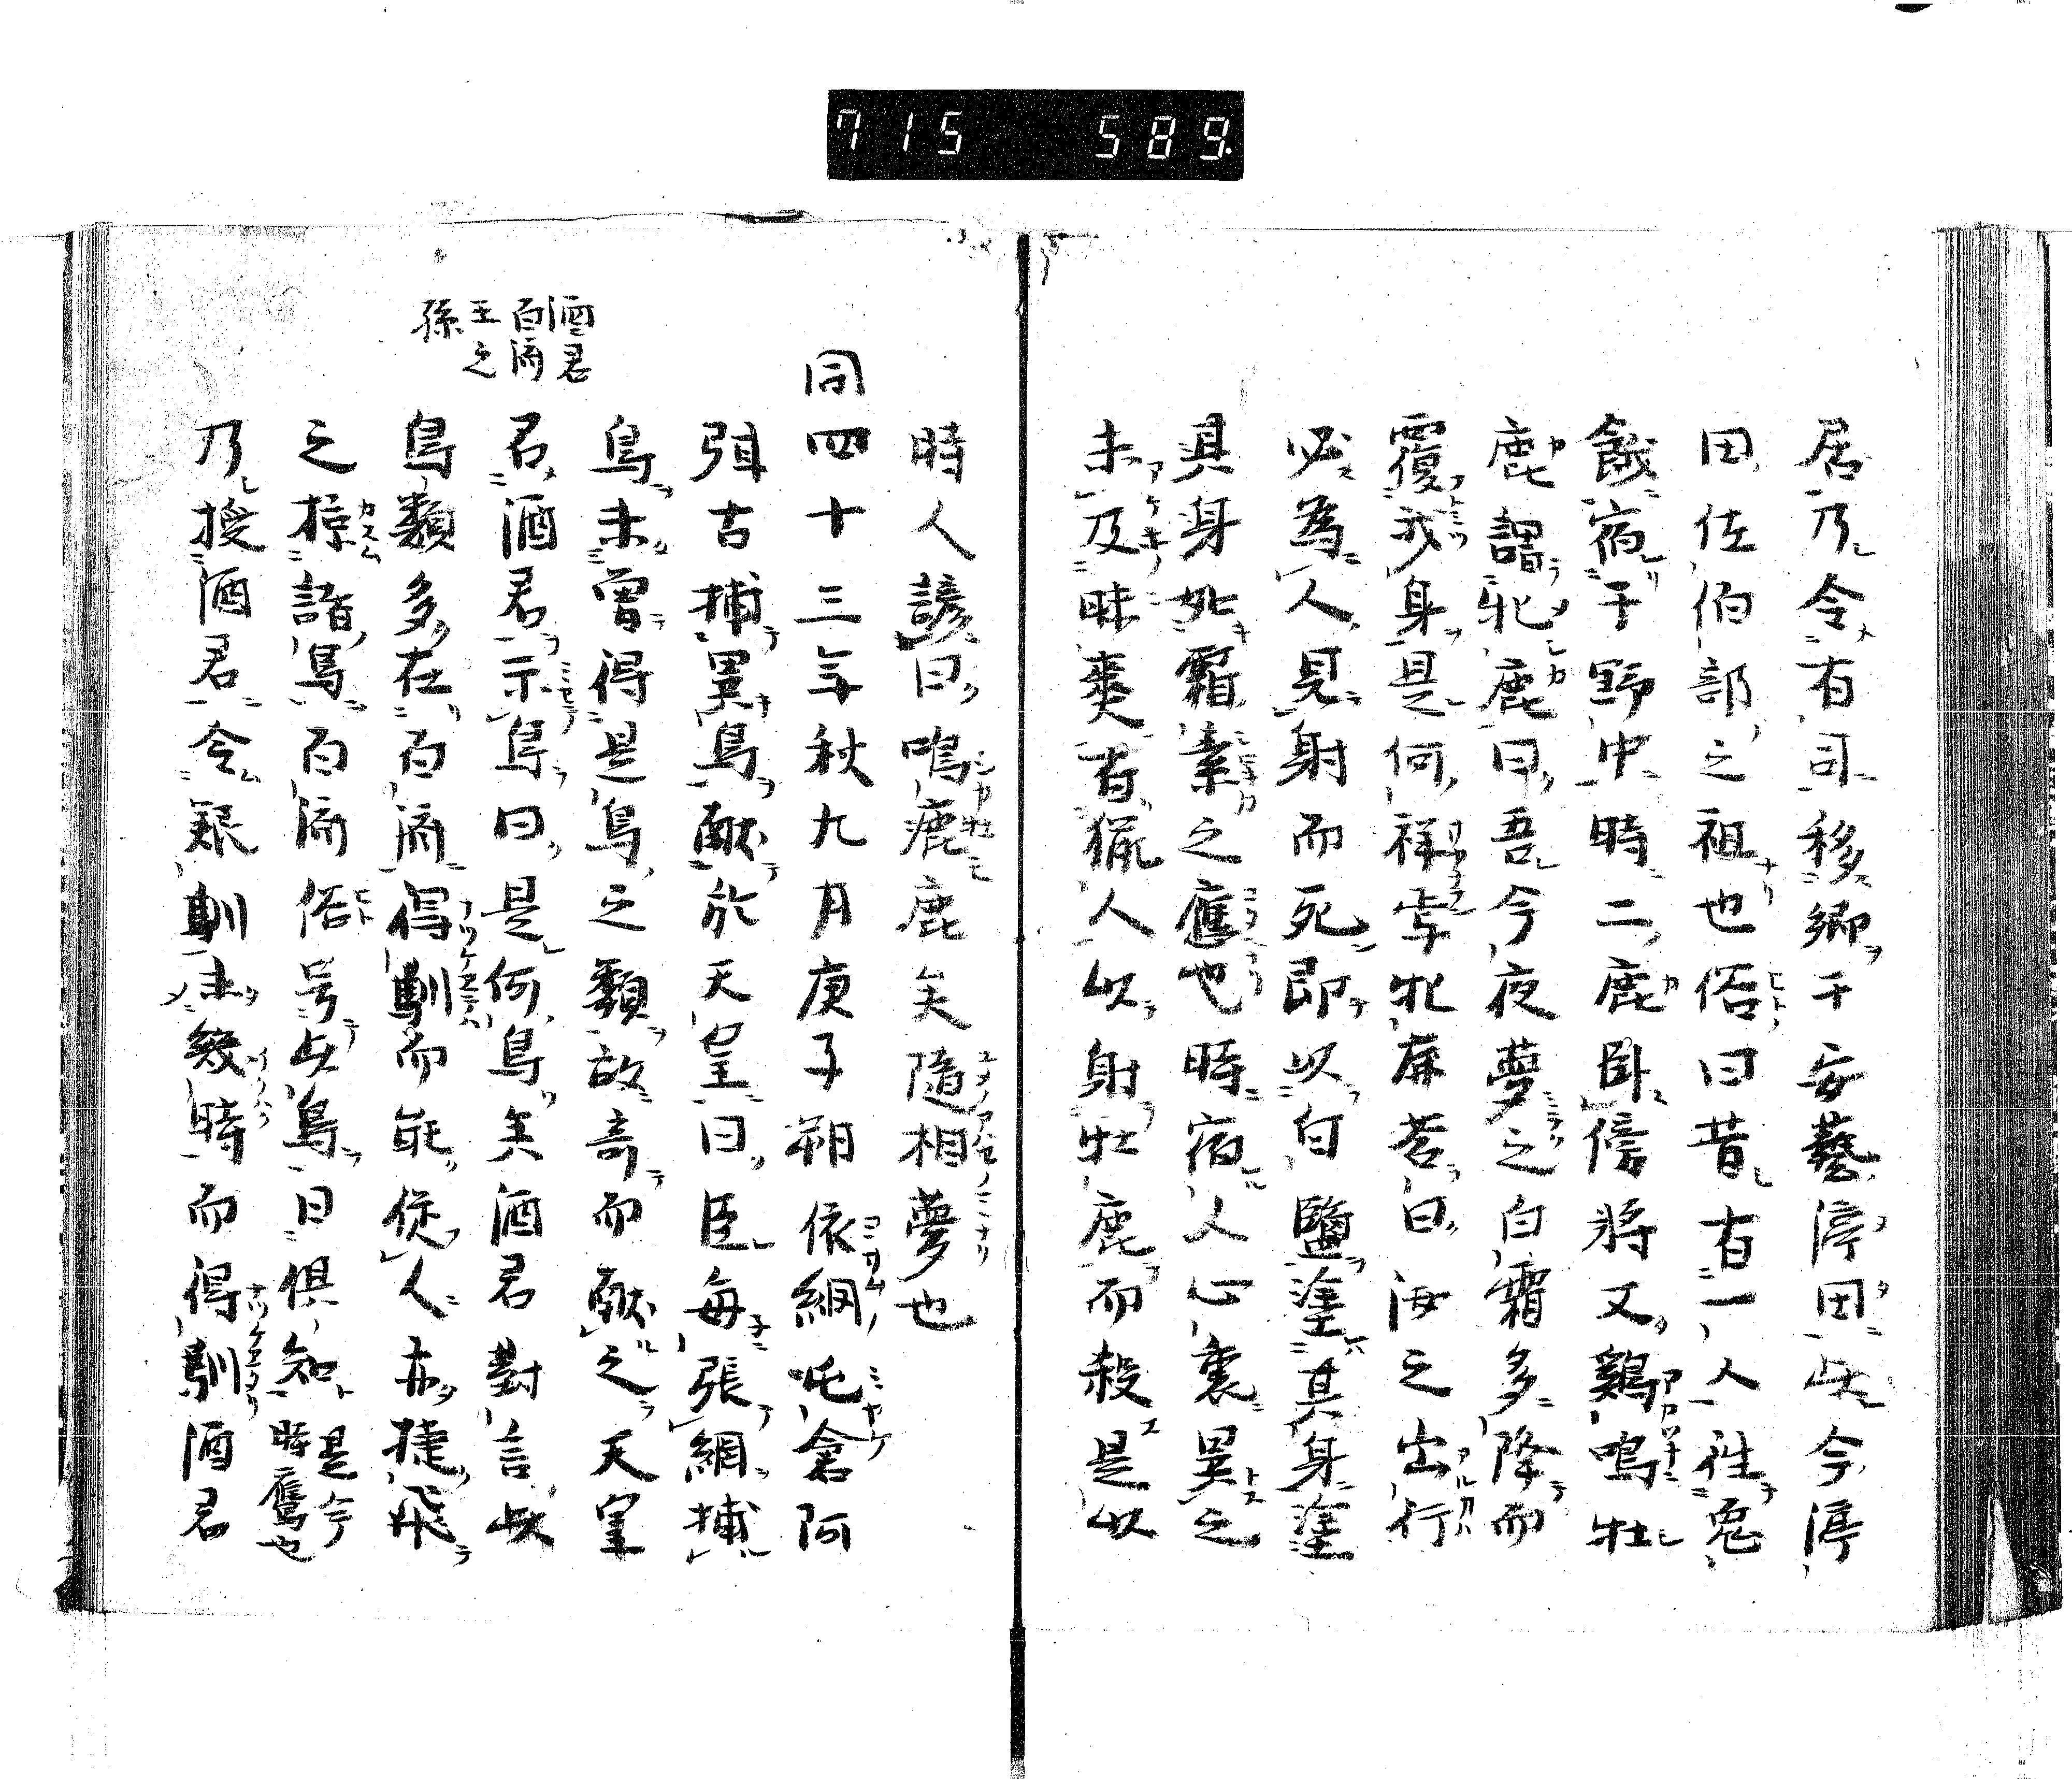 715 589.
居乃令有司移郷于安藝渟田此今渟
田佐伯部之祖也俗曰昔有一人往兎
餓宿于野中時二鹿臥傍将又鷄鳴牡
鹿謂牝鹿曰吾今夜夢之白霜多降而
覆吾身是何祥乎牝鹿荅曰汝之出行
必為人見射而死即以白鹽塗其身塗
具身如霜素之應也時宿人心裏異之
未及昧爽有猟人以射牡鹿而殺是以
時人諺曰鳴鹿鹿矣隨相夢也
同四十三年秋九月庚子朔依網屯倉阿
弭古捕異鳥献於天皇曰臣毎張網捕
鳥未曽得是鳥之類故奇而献之天皇
酒君
百済
王之
孫
召酒君示鳥曰是何鳥矣酒君對言此
鳥類多在百済得馴而能從人亦捷飛
之掠諸鳥百済俗号此鳥曰倶知是今時鷹也
乃授酒君令養馴未幾時而得馴酒君